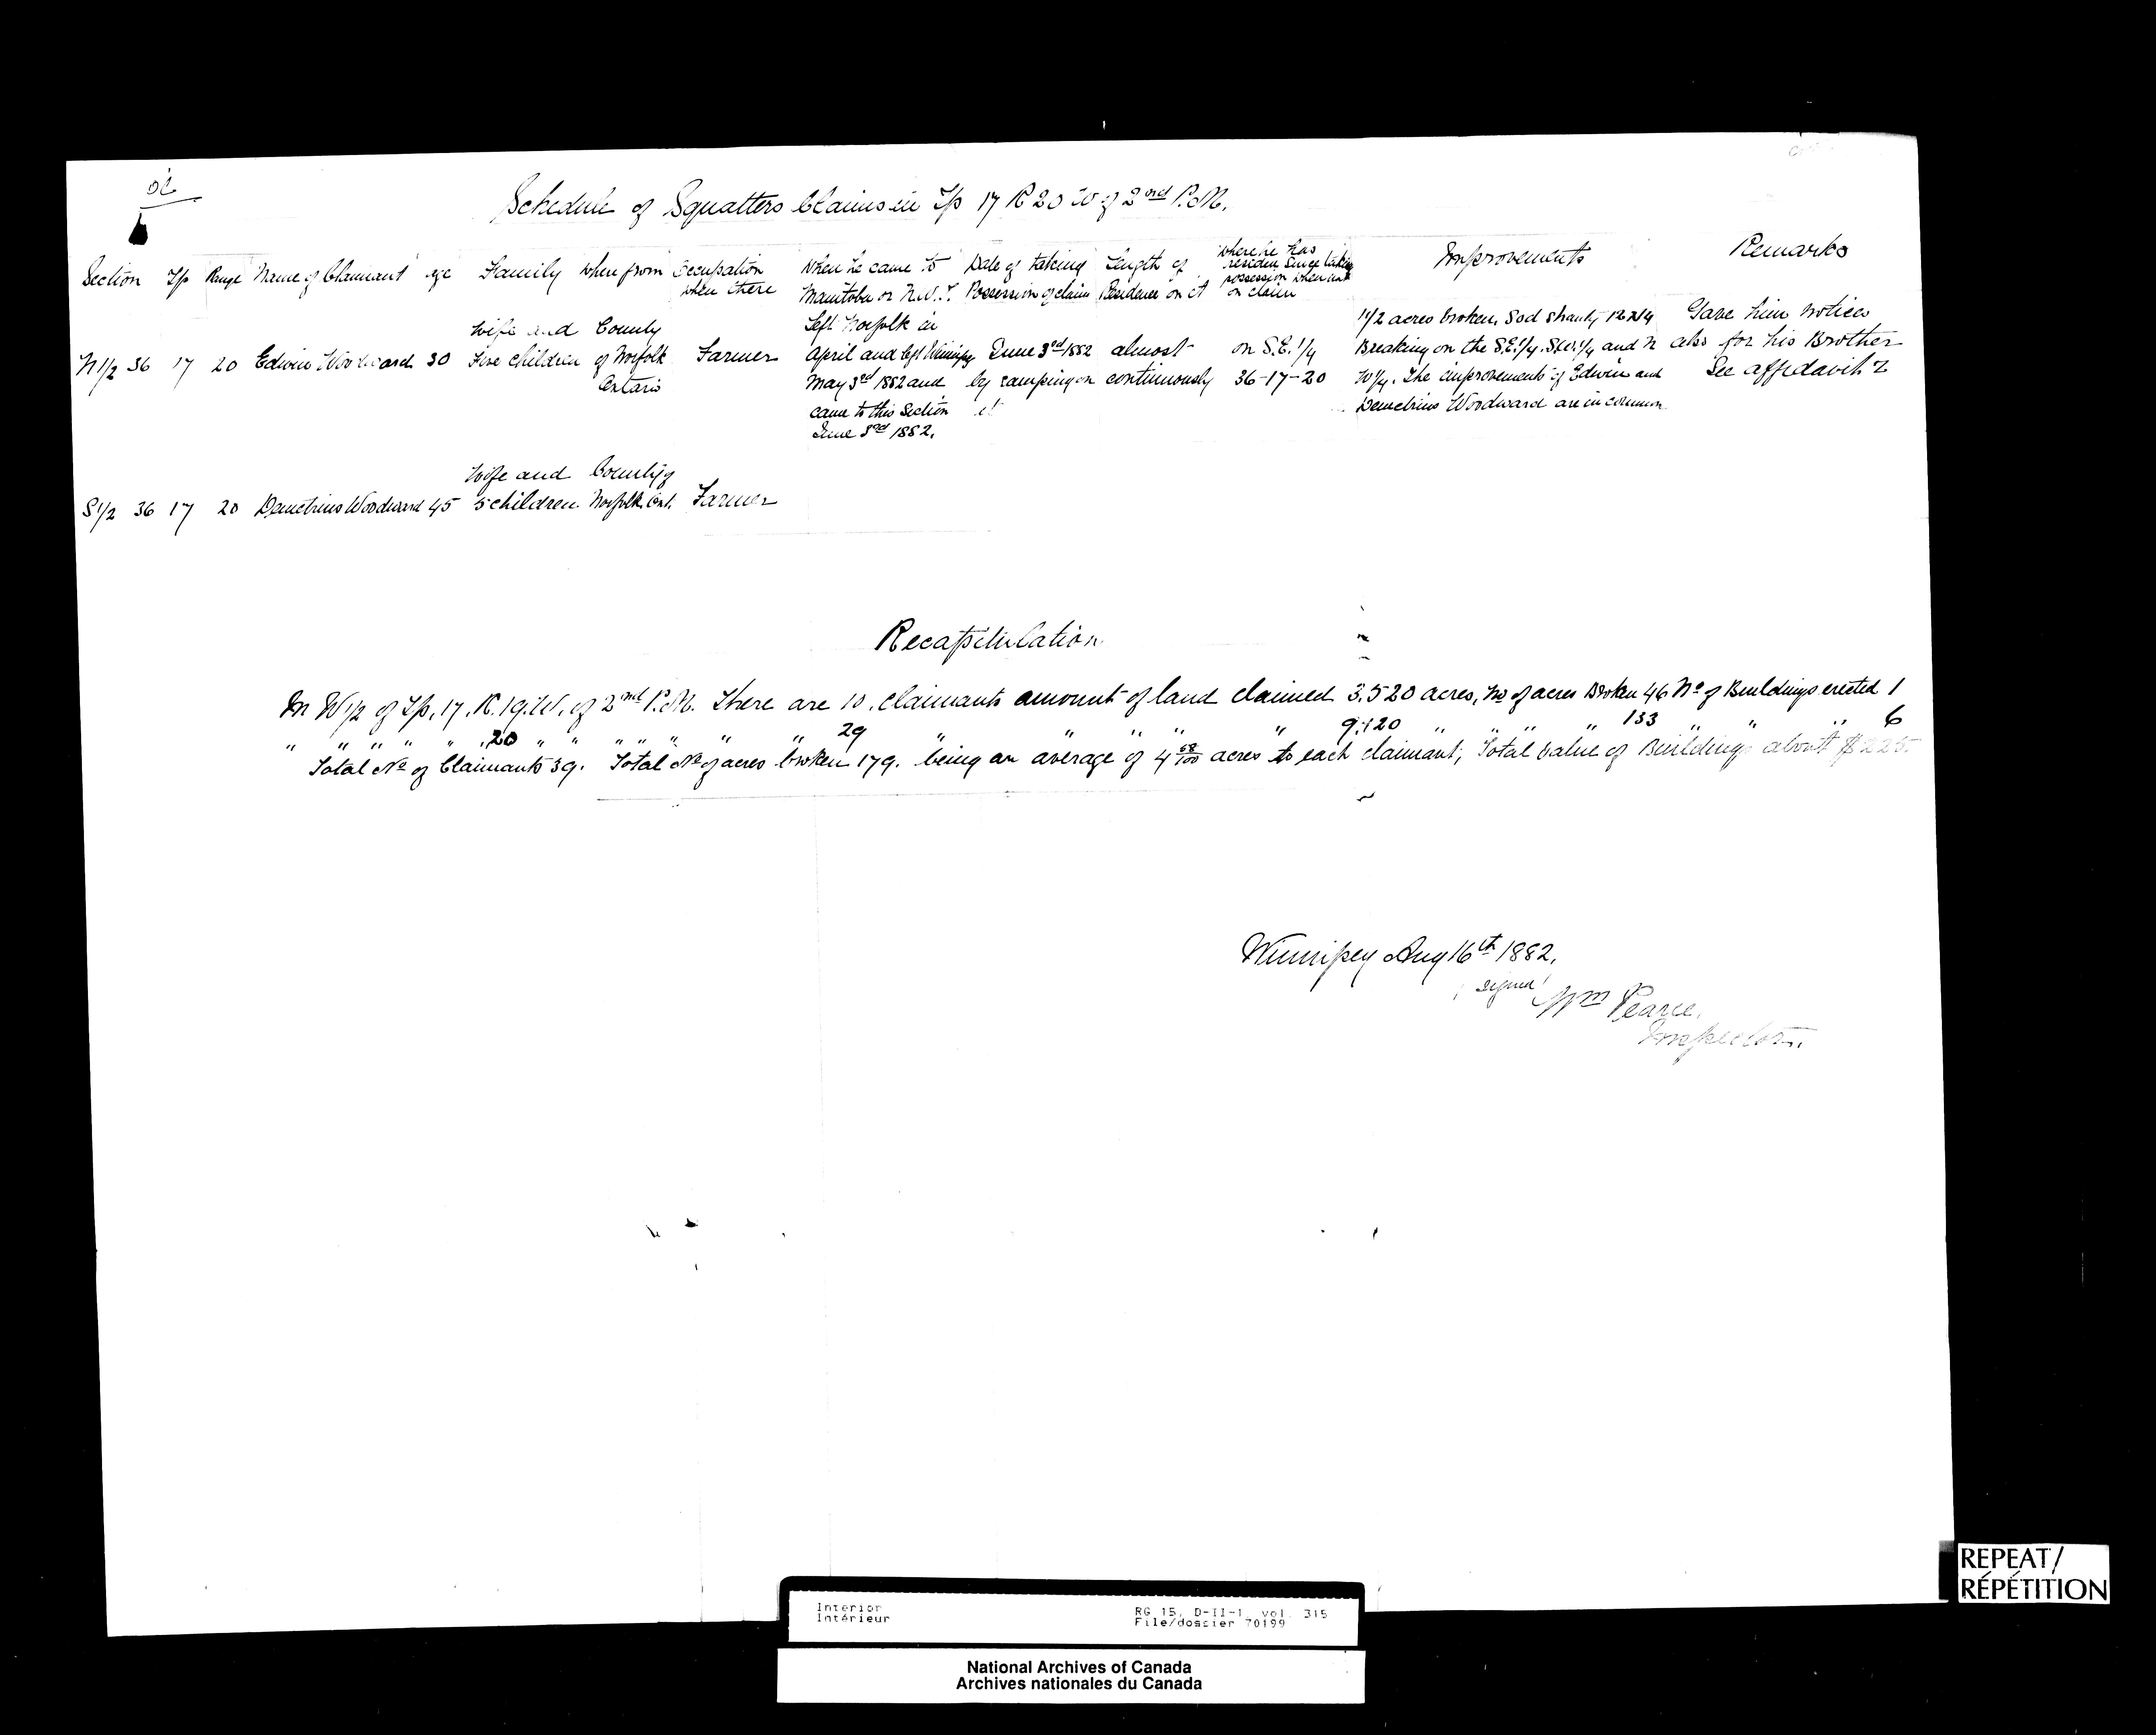 Schedule of Squatters Claims in Tp 17 R 20 W of 2nd P.M.
Section Tp Range Name of Claimant age Family where from Occupation when there When he came to Manitoba or N.W.T. Date of taking Possession of claim Length of Residence on it where he has resided since taking possession when not on claim Improvements Remarks
N1/2 36 17 20 Edwin Woodward 30 Wife and Five children County of Norfolk Ontario Farmer Left Norfolk in April and left Winnipeg May 3rd 1882 and came to this Section June 3rd 1882. June 3rd 1882 by camping on it almost continuously on S.E. 1/4 36-17-20 1 1/2 acres broken. Sod shanty 12x14 Breaking on the S.E. 1/4. S.W. 1/4 and N W 1/4. The improvements of Edwin and Demetrius Woodward are in common Gave him notices also for his Brother See affidavit
S1/2 36 17 20 Demetrius Woodward 45 Wife and 5 children County of Norfolk Ont. Farmer
Recapitulation
In W1/2 of Tp. 17. R. 19. W. of 2nd P.M. There are 10. claimants amount of land claimed 3.520 acres, No of acres Broken 46 No of Buildings erected 1
" " " " " 20 " " " " " " " 29 " " " " " 9,120 " " " 133 " " " 6
Total No of Claimants 39. Total No of acres broken 179. being an average of 4 58/100 acres to each claimant; Total value of Buildings about $225.
Winnipeg Aug 16th 1882.
signed Wm Pearce.
Inspector.
Interior
Intérieur
RG 15, D-II-1, vol. 315
File/dossier 70199
National Archives of Canada
Archives nationales du Canada
REPEAT/
RÉPÉTITION